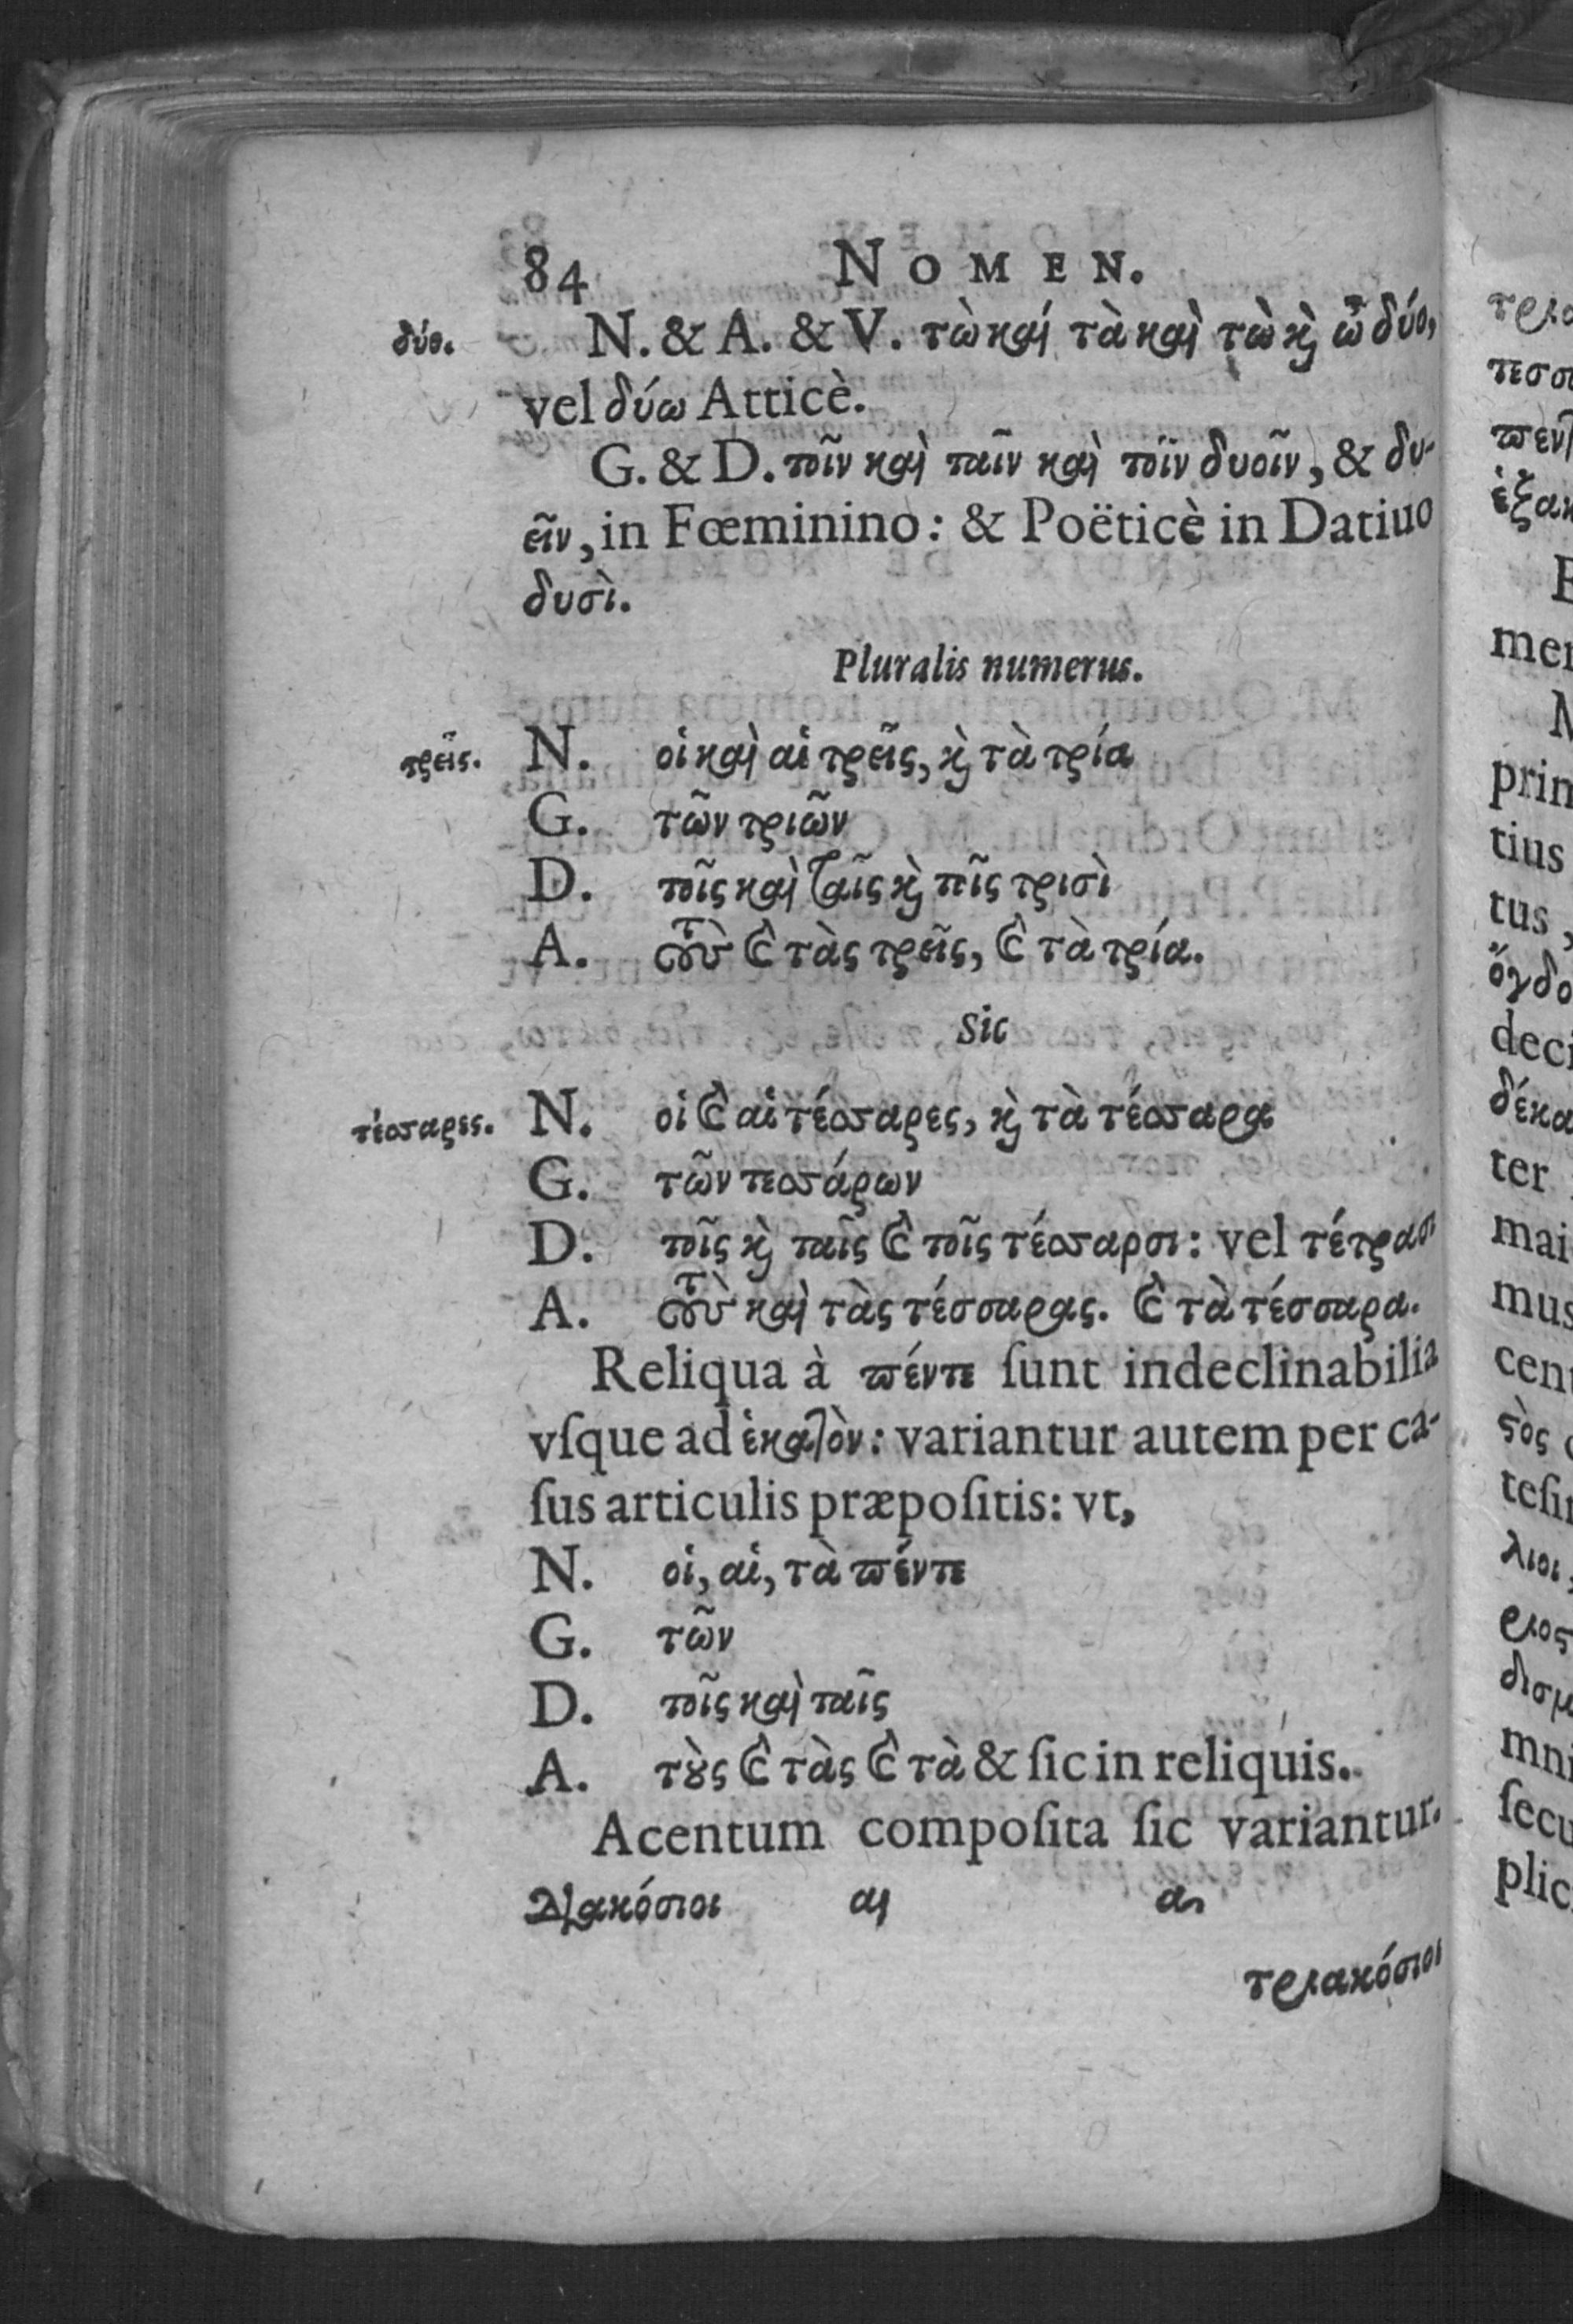 84 NOMEN.
δύο. N. & A. & V. τὼ καί τὰ καὶ τὼ κὶ ὦ δύο,
vel δύω Atticè.
G. & D. τοῖν καὶ ταῖν καὶ τοῖν δυοῖν, & δυ-
εῖν, in Fœminino: & Poëticè in Datiuo
δυσὶ.
Pluralis numerus.
τρεῖς. N. οἱ καὶ αἱ τρεῖς, κὶ τὰ τρία
G. τῶν τριῶν
D. τοῖς καὶ ταῖς κὶ τοῖς τρισὶ
A. τοὺς καὶ τὰς τρεῖς, καὶ τὰ τρία.
Sic
τέσσαρες. N. οἱ καὶ αἱ τέσσαρες, κὶ τὰ τέσσαρα
G. τῶν τεσσάρων
D. τοῖς κὶ ταῖς καὶ τοῖς τέσσαρσι: vel τέτρασι
A. τοὺς καὶ τὰς τέσσαρας. καὶ τὰ τέσσαρα.
Reliqua à πέντε ſunt indeclinabilia
vſque ad ἑκατὸν: variantur autem per ca-
ſus articulis præpoſitis: vt,
N. οἱ, αἱ, τὰ πέντε
G. τῶν
D. τοῖς καὶ ταῖς
A. τοὺς καὶ τὰς καὶ τὰ & ſic in reliquis.
Acentum compoſita ſic variantur.
διακόσιοι αι α
τριακόσιοι